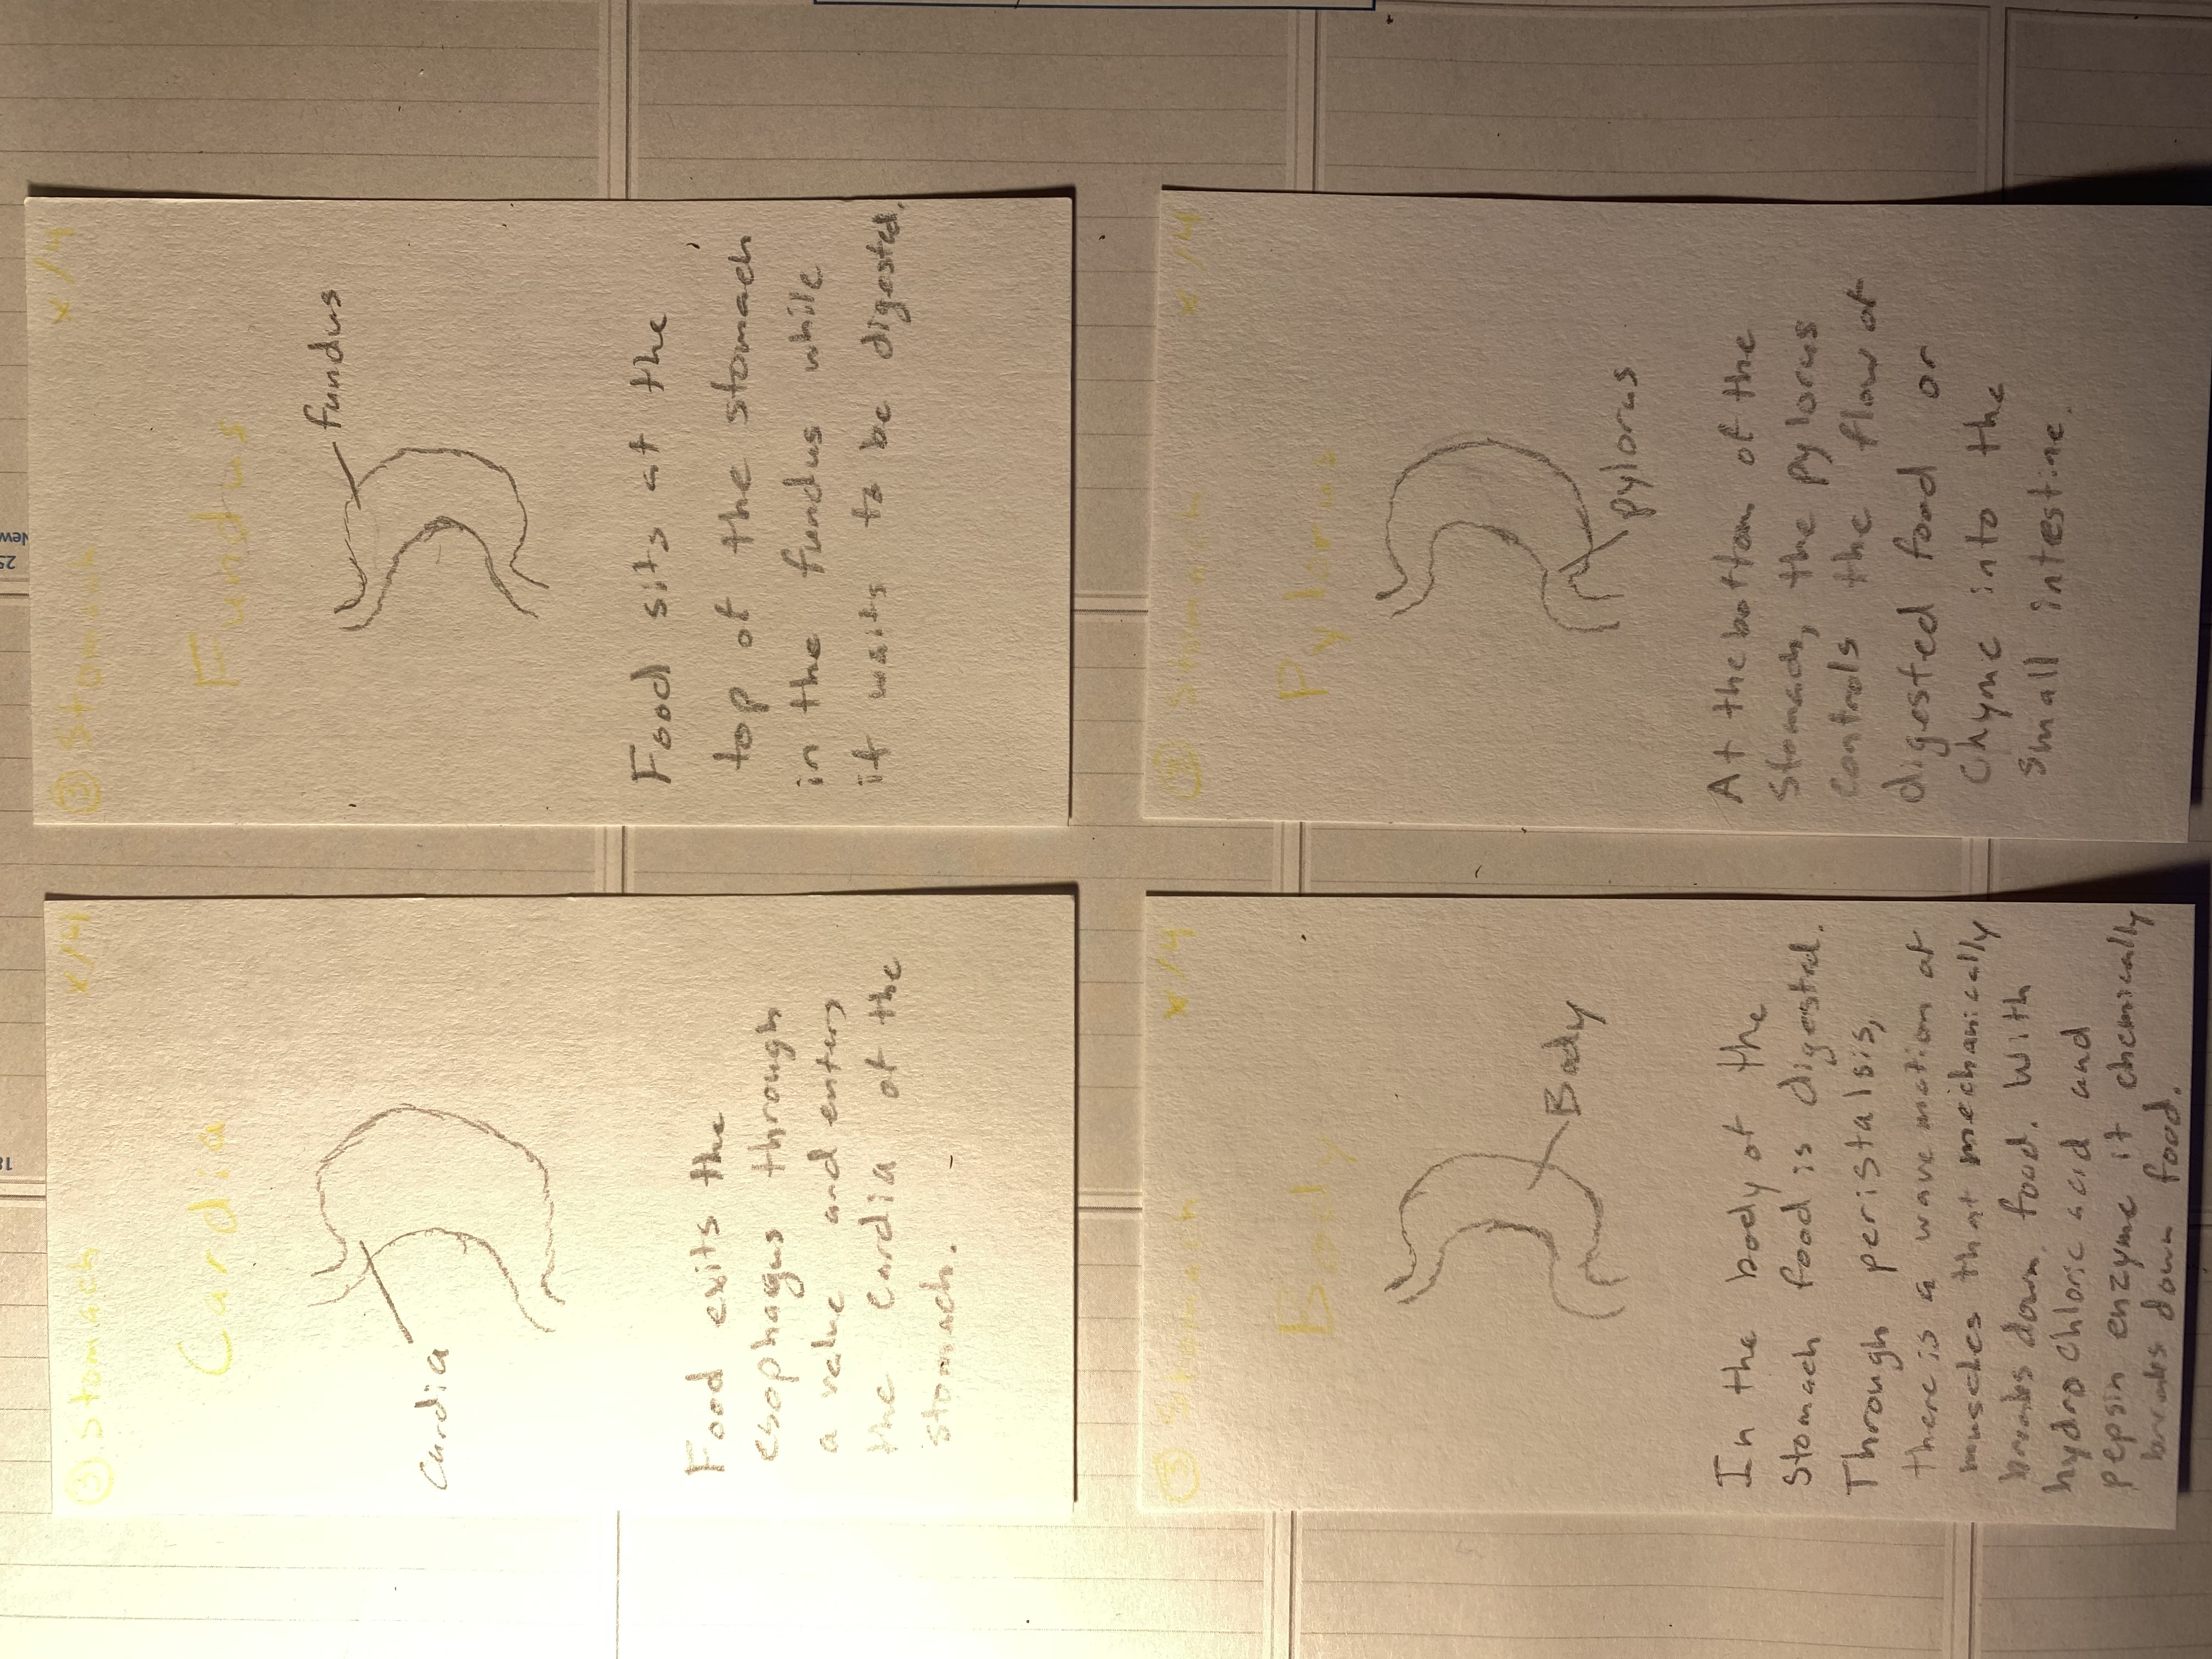 ③ Stomach x/4
Cardia
Cardia
Food exits the
esophagus through
a valve and enters
the cardia of the
stomach.
③ Stomach x/4
Fundus
fundus
Food sits at the
top of the stomach
in the fundus while
it waits to be digested.
③ Stomach x/4
Body
Body
In the body of the
Stomach food is digested.
Through peristalsis,
there is a wave motion of
muscles that mechanically
breaks down food. With
hydrochloric acid and
pepsin enzyme it chemically
breaks down food.
③ Stomach x/4
Pylorus
pylorus
At the bottom of the
Stomach, the pylorus
controls the flow of
digested food or
Chyme into the
Small intestine.
25
New
18